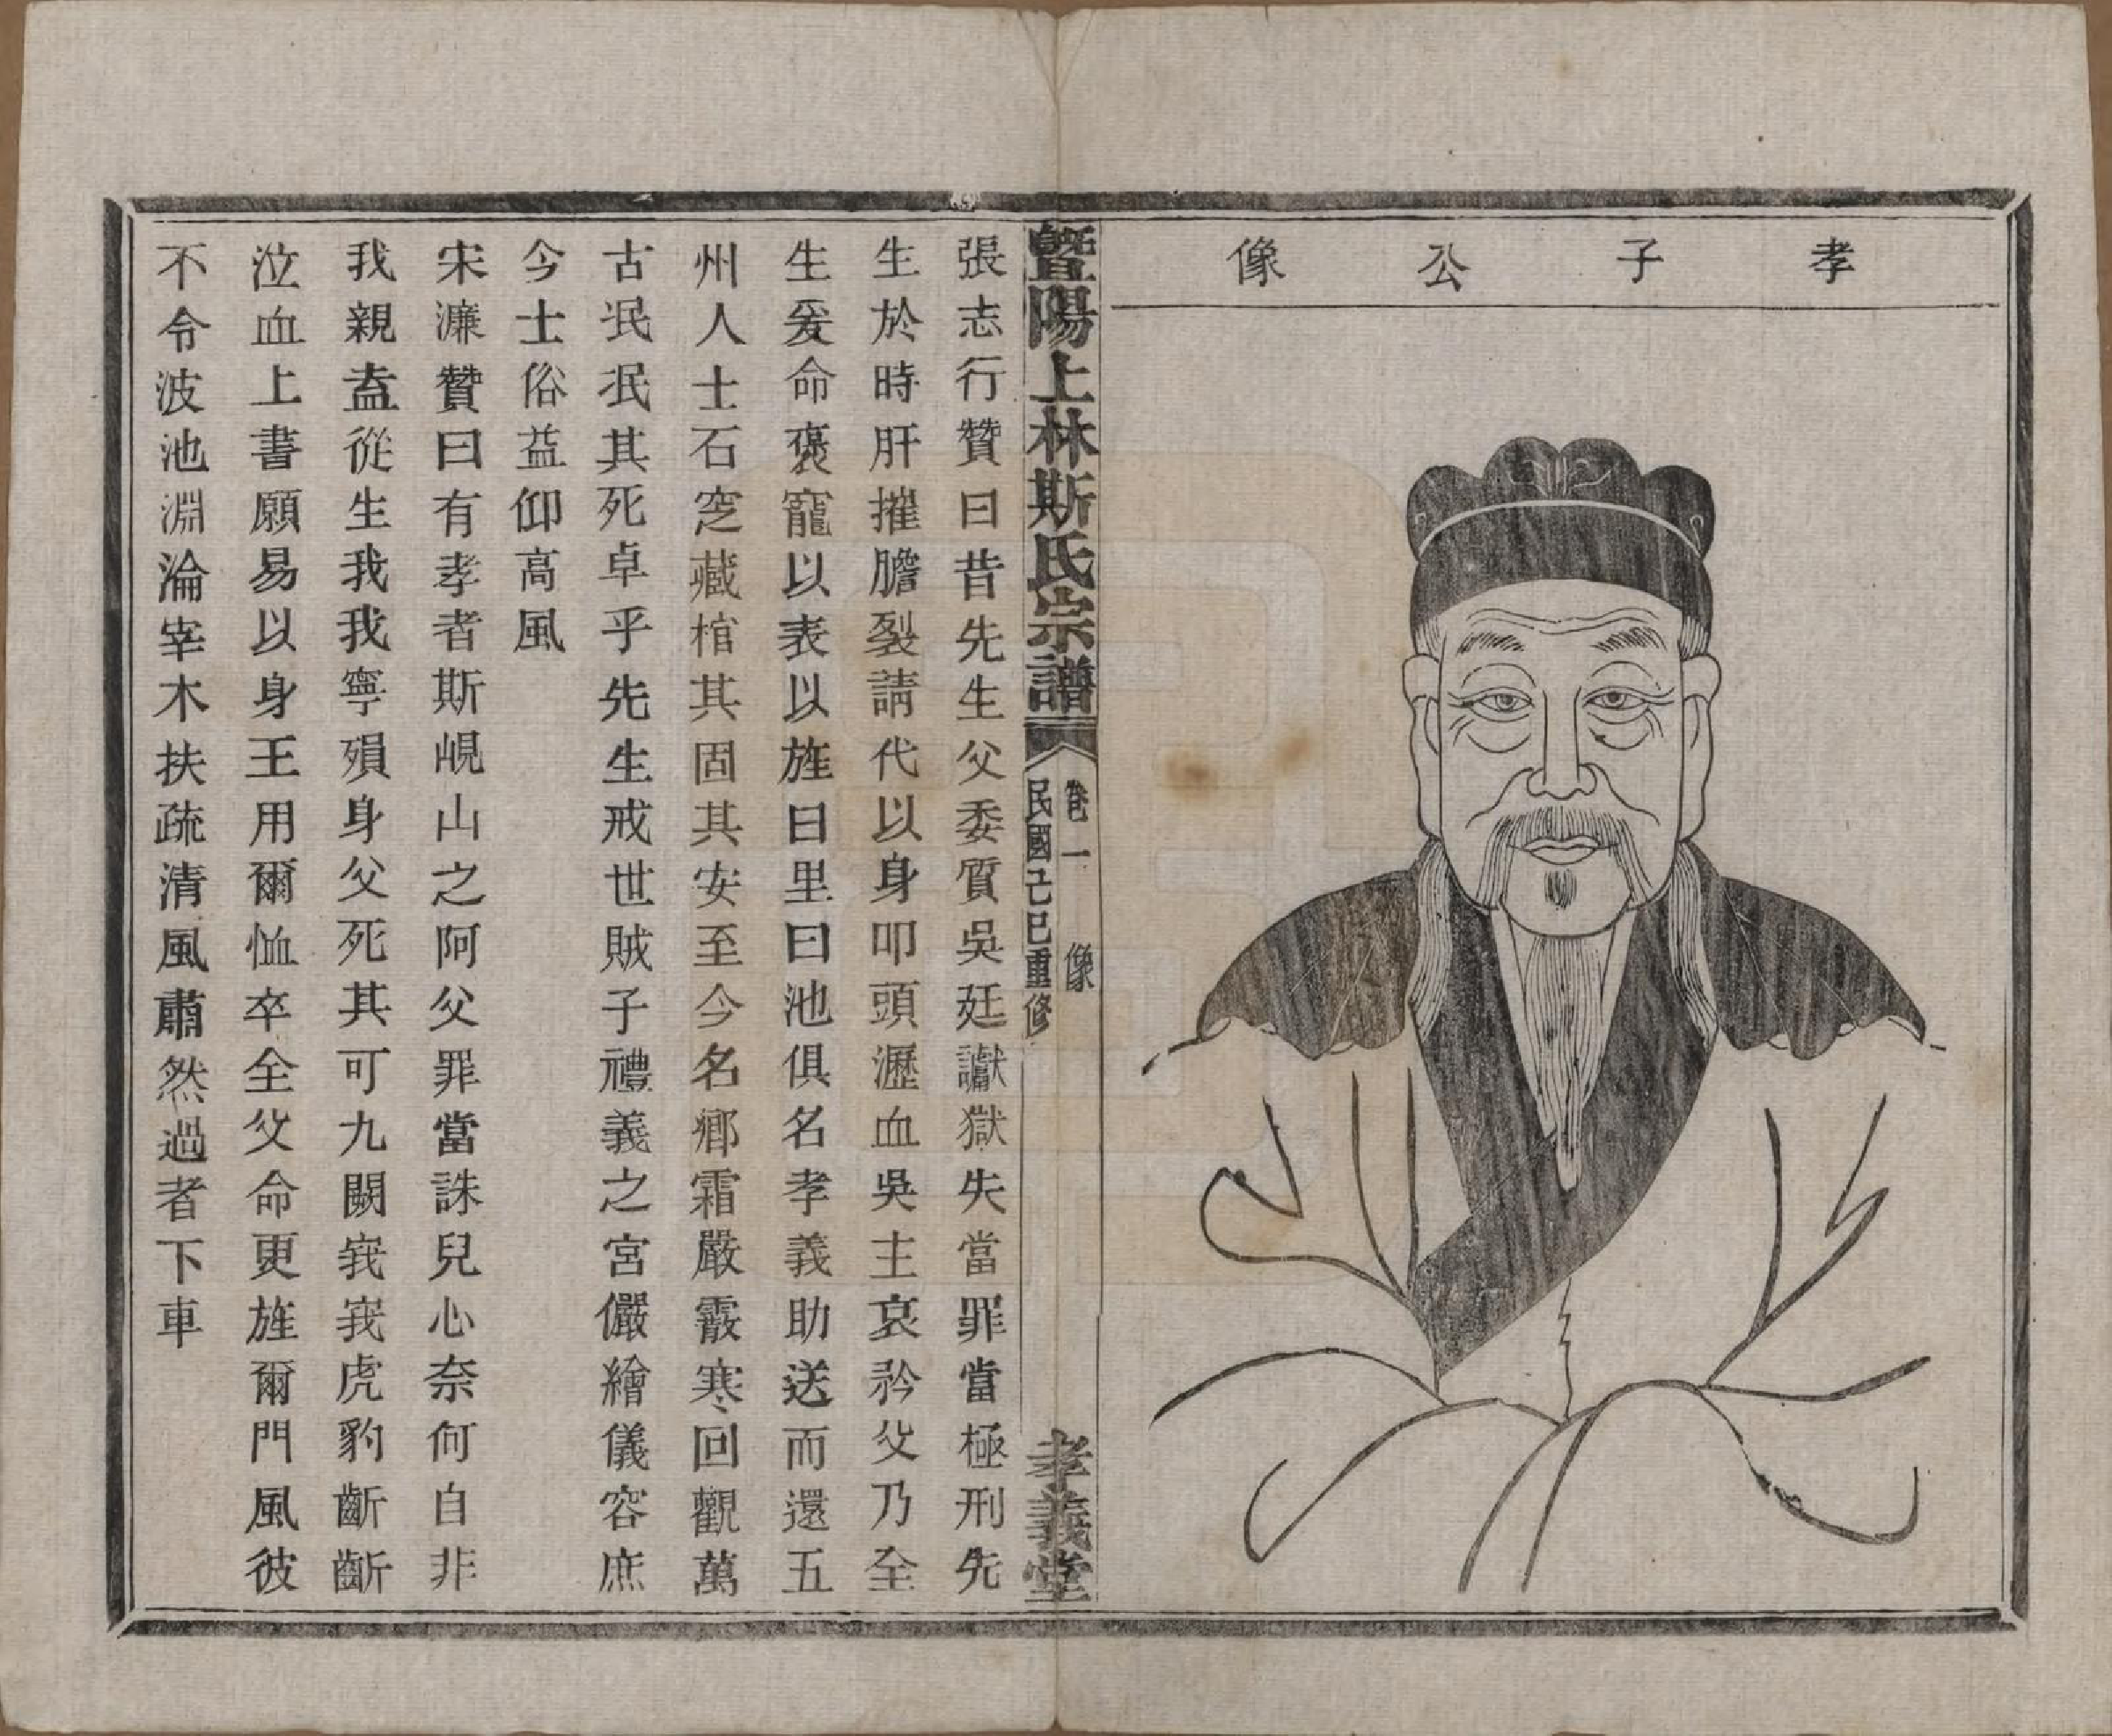 孝子公像
暨陽上林斯氏宗譜
卷一 像
民國己巳重修
孝義堂
張志行贊曰昔先生父委質吳廷讞獄失當罪當極刑先
生於時肝摧膽裂請代以身叩頭瀝血吳主哀矜父乃全
生爰命褒寵以表以旌曰里曰池俱名孝義助送而還五
州人士石窆藏棺其固其安至今名鄉霜嚴霰寒回觀萬
古泯泯其死卓乎先生戒世賊子禮義之宮儼繪儀容庶
今士俗益仰高風
宋濂贊曰有孝者斯峴山之阿父罪當誅兒心奈何自非
我親盍從生我我寧殞身父死其可九關峩峩虎豹齗齗
泣血上書願易以身王用爾恤卒全父命更旌爾門風彼
不令波池淵淪宰木扶疏清風肅然過者下車